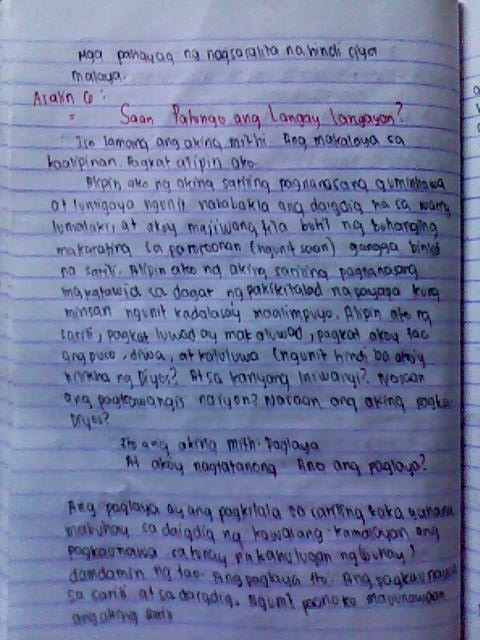 Mga pahayag na nagsasalita na hindi siya
malaya.
Aralin 6:
= Saan Patungo ang Langay Langayan?
Iso lamang ang aking mithi. Ang makalaya sa
kaalipinan. Pagkat alipin ako.
Alipin ako ng aking sariling pagnanasang guminhawa
at lumigaya ngunit nababakla ang daigdig na sa wari
lumalaki, at akoy majiwang tila butil ng buhanging
makarating sa paroroonan (ngunit saan) gangga
na sarili. Alipin ako ng aking sariling pagnanasang
makatawid sa dagat ng pakikitalad na payapa kung
minsan ngunit kadalasay maalimpuyo. Alipin ako ng
sarili, pagkat luwad ay makaluwad, pagkat akoy tao
ang puso, diwa, at kaluluwa (ngunit hindi ba akoy
likha ng Diyos? At sa kanyang iniwangi? Nasaan
ang pagkawangis na iyon? Nasaan ang aking pagka
Diyos?
Ito ang aking mithi. Paglaya
At akoy nagtatanong: Ano ang paglaya?
Ang paglaya ay ang pagkilala sa sariling kaka
mabuhay sa daigdig ng kawalang-kamalayan ang
pagkaunawa sa tunay na kahulugan ng buhay?
damdamin ng tao. Ang paglaya ito: Ang pagkaunawa
sa sarili at sa daigdig. Ngunit paano ko mauunawaan
ang aking sarili